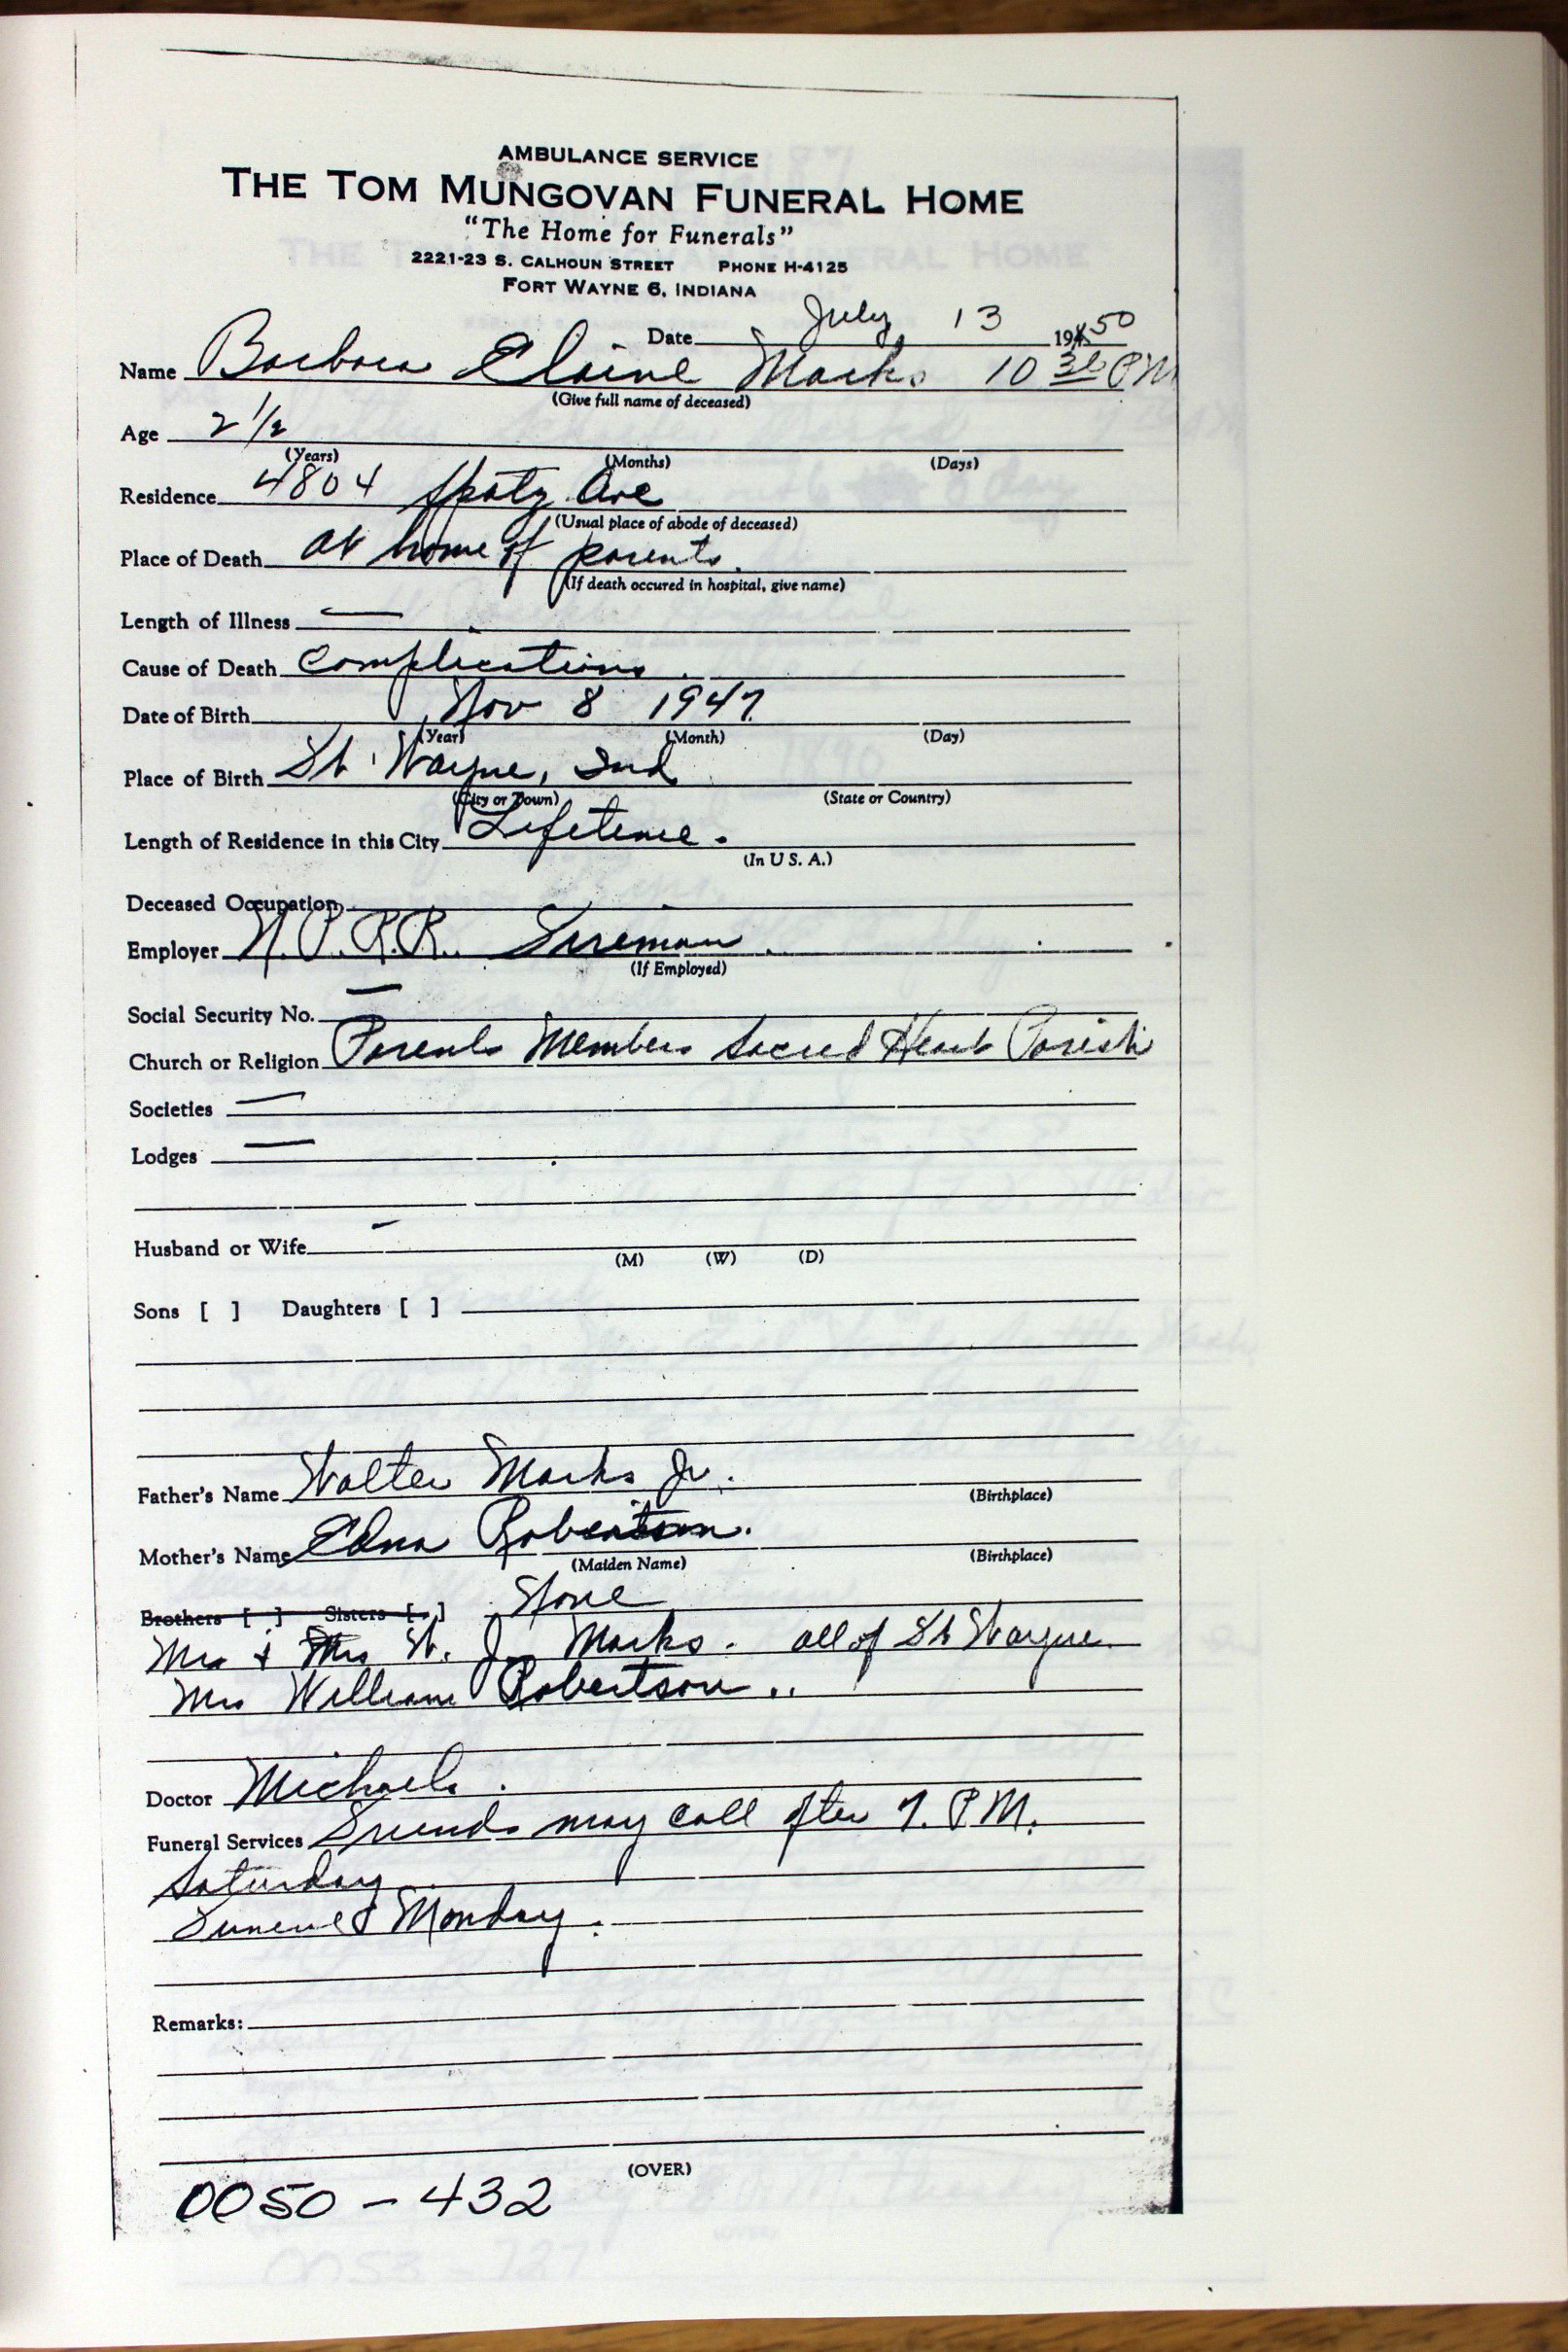 AMBULANCE SERVICE
THE TOM MUNGOVAN FUNERAL HOME
"The Home for Funerals"
2221-23 S. CALHOUN STREET PHONE H-4125
FORT WAYNE 6, INDIANA
Date July 13 1950
Name Barbara Elaine Marks 10 30 PM
(Give full name of deceased)
Age 2 1/2
(Years) (Months) (Days)
Residence 4804 Spatz Ave
(Usual place of abode of deceased)
Place of Death at home of parents.
(If death occured in hospital, give name)
Length of Illness —
Cause of Death Complications.
Date of Birth Nov 8 1947
(Year) (Month) (Day)
Place of Birth Ft Wayne, Ind
(City or Town) (State or Country)
Length of Residence in this City Lifetime.
(In U S. A.)
Deceased Occupation
Employer N.P.R.R. Fireman.
(If Employed)
Social Security No. —
Church or Religion Parents Members Sacred Heart Parish
Societies —
Lodges —
Husband or Wife -
(M) (W) (D)
Sons [ ] Daughters [ ]
Father's Name Walter Marks Jr.
(Birthplace)
Mother's Name Edna Robertson.
(Maiden Name) (Birthplace)
Brothers [ ] Sisters [ ] None
Mr & Mrs W. J. Marks. all of Ft Wayne.
Mrs William Robertson ..
Doctor Michaels.
Funeral Services Friends may call after 7. P.M.
Saturday.
Funeral Monday.
Remarks:
(OVER)
0050-432